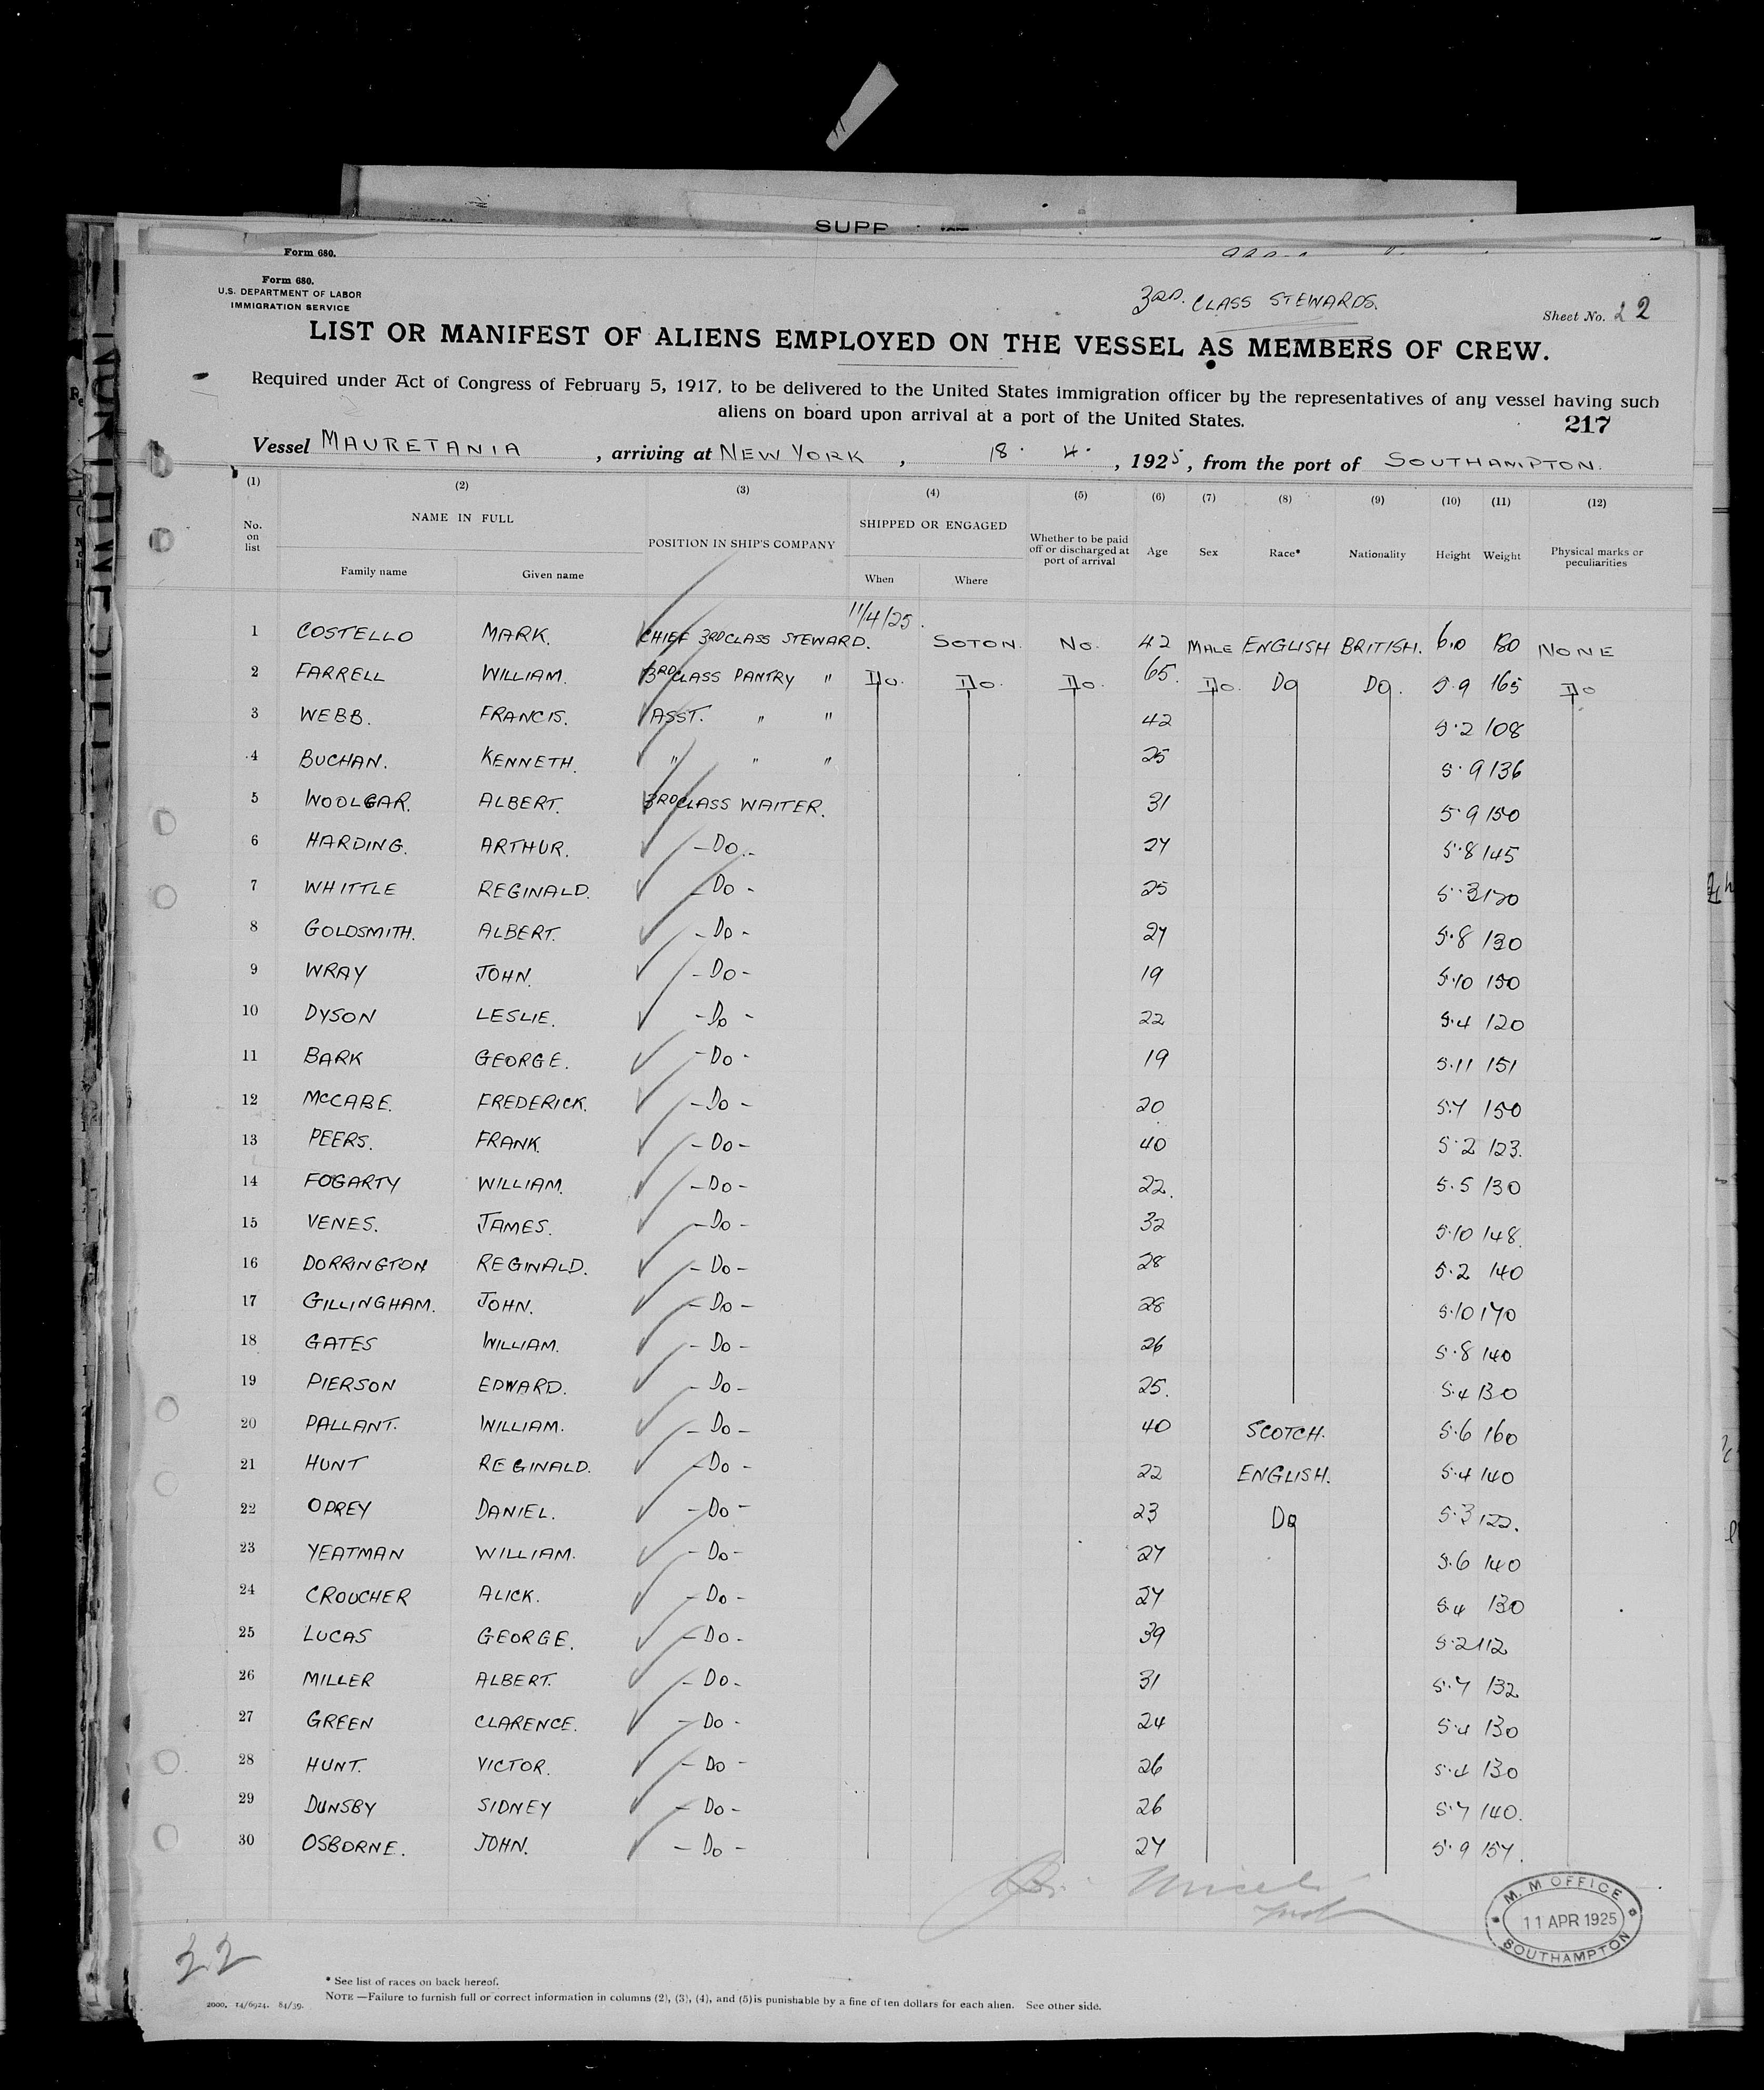 SUPP
Form 680.
Form 680.
U.S. DEPARTMENT OF LABOR
IMMIGRATION SERVICE
3RD. CLASS STEWARDS.
Sheet No. 22
LIST OR MANIFEST OF ALIENS EMPLOYED ON THE VESSEL AS MEMBERS OF CREW.
Required under Act of Congress of February 5, 1917, to be delivered to the United States immigration officer by the representatives of any vessel having such
aliens on board upon arrival at a port of the United States.
217
Vessel MAURETANIA, arriving at NEW YORK, 18. 4., 1925, from the port of SOUTHAMPTON.
(1) (2) (3) (4) (5) (6) (7) (8) (9) (10) (11) (12)
No. on list NAME IN FULL POSITION IN SHIP'S COMPANY SHIPPED OR ENGAGED Whether to be paid off or discharged at port of arrival Age Sex Race* Nationality Height Weight Physical marks or peculiarities
Family name Given name When Where
11/4/25.
1 COSTELLO MARK. CHIEF 3RD CLASS STEWARD. SOTON. No. 42 MALE ENGLISH BRITISH. 6.0 NONE
2 FARRELL WILLIAM. 3RD CLASS PANTRY " Do. Do. Do. 65. Do. Do Do. 5.9 165 Do
3 WEBB. FRANCIS. ASST. " " 42 5.2 108
4 BUCHAN. KENNETH. " " " 25 5.9 136
5 WOOLGAR. ALBERT. 3RD CLASS WAITER. 31 5.9 150
6 HARDING. ARTHUR. - Do. - 27 5.8 145
7 WHITTLE REGINALD. - Do - 25 5.3
8 GOLDSMITH. ALBERT. - Do - 27 5.8 130
9 WRAY JOHN. - Do - 19 5.10 150
10 DYSON LESLIE. - Do - 22 5.4 120
11 BARK GEORGE. - Do - 19 5.11 151
12 McCABE. FREDERICK. - Do - 20 5.7 150
13 PEERS. FRANK. - Do - 40 5.2 123.
14 FOGARTY WILLIAM. - Do - 22. 5.5 130
15 VENES. JAMES. - Do - 32 5.10 148.
16 DORRINGTON REGINALD. - Do - 28 5.2 140
17 GILLINGHAM. JOHN. - Do - 28 5.10 170
18 GATES WILLIAM. - Do - 26 5.8 140
19 PIERSON EDWARD. - Do - 25. 5.4 130
20 PALLANT. WILLIAM. - Do - 40 SCOTCH. 5.6 160
21 HUNT REGINALD. - Do - 22 ENGLISH. 5.4 140
22 OPREY DANIEL. - Do - 23 Do 5.3 122.
23 YEATMAN WILLIAM. - Do - 27 5.6 140
24 CROUCHER ALICK. - Do - 27 5.4 130
25 LUCAS GEORGE. - Do - 39 5.2 112
26 MILLER ALBERT. - Do - 31 5.7 132
27 GREEN CLARENCE. - Do - 24 5.4 130
28 HUNT. VICTOR. - Do - 26 5.4 130
29 DUNSBY SIDNEY - Do - 26 5.7 140.
30 OSBORNE. JOHN. - Do - 27 5.9 157.
M. M OFFICE
11 APR 1925
SOUTHAMPTON
22
* See list of races on back hereof.
NOTE—Failure to furnish full or correct information in columns (2), (3), (4), and (5) is punishable by a fine of ten dollars for each alien. See other side.
2000, 14/6924. 84/39.